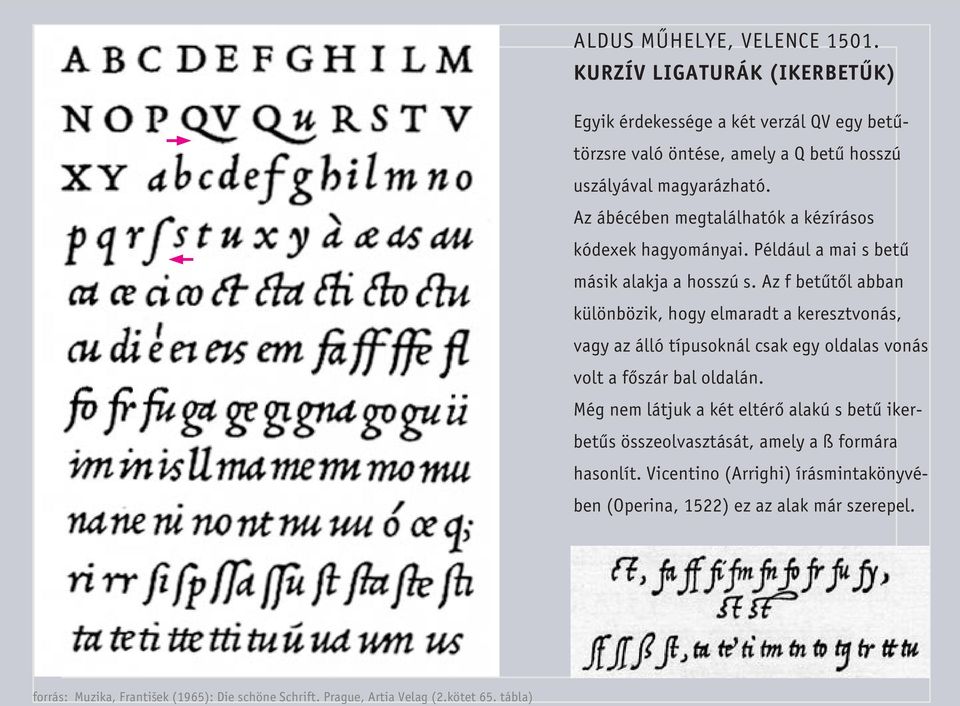 A B C D E F G H I L M
N O P QV Qu R S T V
X Y a b c d e f g h i l m n o
p q r ſ s t u x y à æ as au
ca ce ci co ct cta cti cto ctu
cu di é ei eis em fa ff ffe fl
fo fr fu ga ge gi gna go gu ii
im in is ll ma me mi mo mu
na ne ni no nt nu uu ó œ q;
ri rr ſi ſp ſſa ſſu ſt ſta ſte ſti
ta te ti tte tti tu ú ud um us
ALDUS MŰHELYE, VELENCE 1501.
KURZÍV LIGATURÁK (IKERBETŰK)
Egyik érdekessége a két verzál QV egy betű-
törzsre való öntése, amely a Q betű hosszú
uszályával magyarázható.
Az ábécében megtalálhatók a kézírásos
kódexek hagyományai. Például a mai s betű
másik alakja a hosszú s. Az f betűtől abban
különbözik, hogy elmaradt a keresztvonás,
vagy az álló típusoknál csak egy oldalas vonás
volt a főszár bal oldalán.
Még nem látjuk a két eltérő alakú s betű iker-
betűs összeolvasztását, amely a ß formára
hasonlít. Vicentino (Arrighi) írásmintakönyvé-
ben (Operina, 1522) ez az alak már szerepel.
ct, fa ff fi fm fn fo fr fu fy,
st st
ſſ ſſ ß ſt, ta te ti tm tn to tg tr tt tu
forrás: Muzika, František (1965): Die schöne Schrift. Prague, Artia Velag (2.kötet 65. tábla)